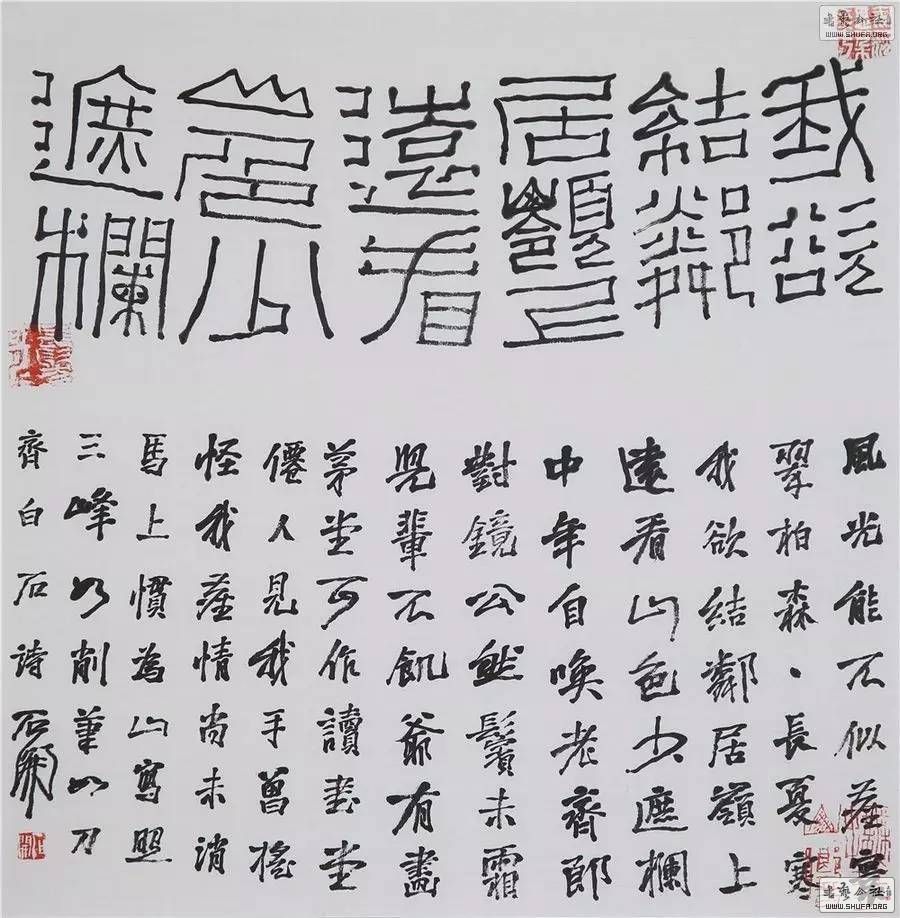 我欲
結鄰
居嶺上
遠看
山色少
遮欄
風光能不似
翠柏森、長夏寒
我欲結鄰居嶺上
遠看山色少遮欄
中年自喚老齊郎
對鏡公然鬢未霜
兒輩不飢爺有畫
茅堂可作讀書堂
僊人見我手曾搖
怪我塵情尚未消
馬上慣為山寫照
三峰如削筆如刀
齊白石詩 石開
WWW.SHUFA.ORG
WWW.SHUFA.ORG